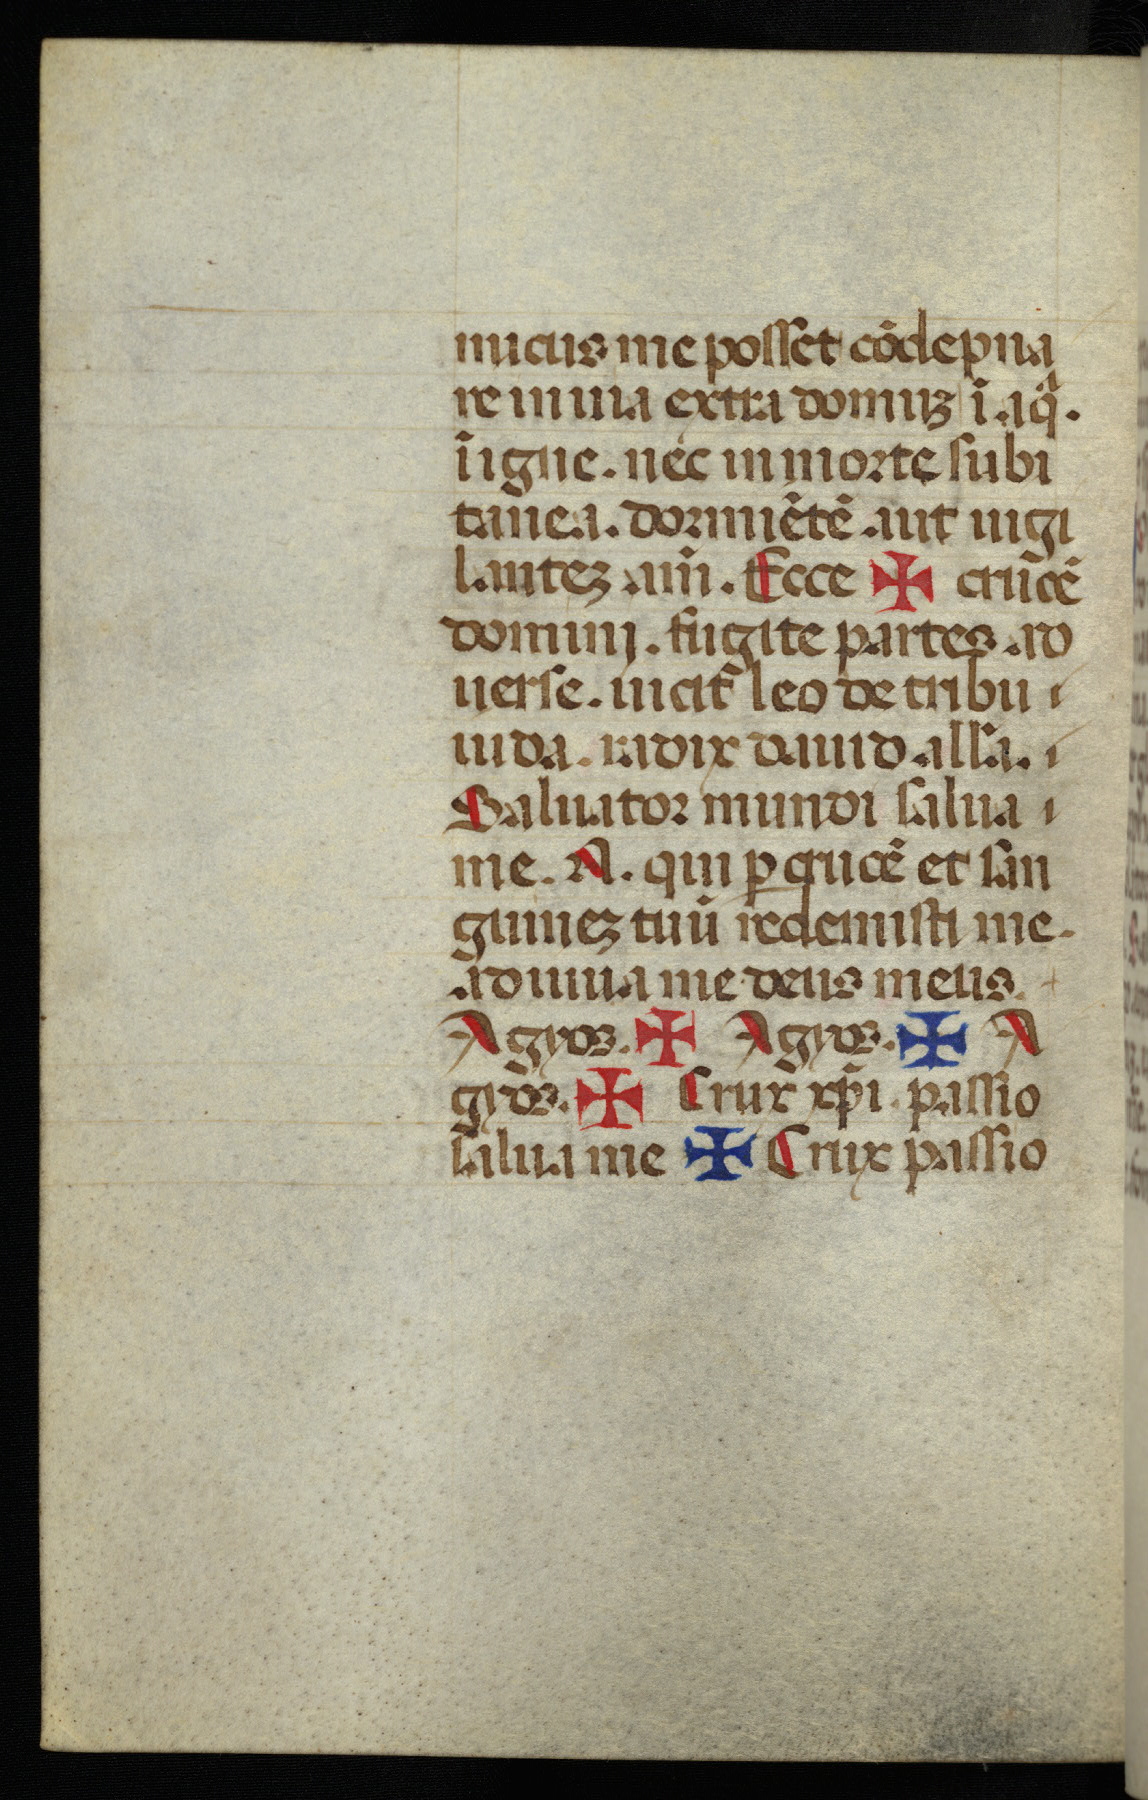 micus me posset cōdepna
re in uia extra domuʒ ī aq̄ᵃ.
ī igne. nec in morte subi
tanea. dormiētē aut uigi
lanteʒ am̄. Ecce ✠ crucē
dominj. fugite partes ad
uerse. uicit̄ leo de tribu
iuda. radix dauid. all̄a.
Saluator mundi salua
me. A. qui ꝑ crucē et san
guineʒ tuū redemisti me.
adiuua me deus meus.
Agyos. ✠ Agyos. ✠ A
gyos. ✠ Crux xp̄i. passio
salua me ✠ Crux passio